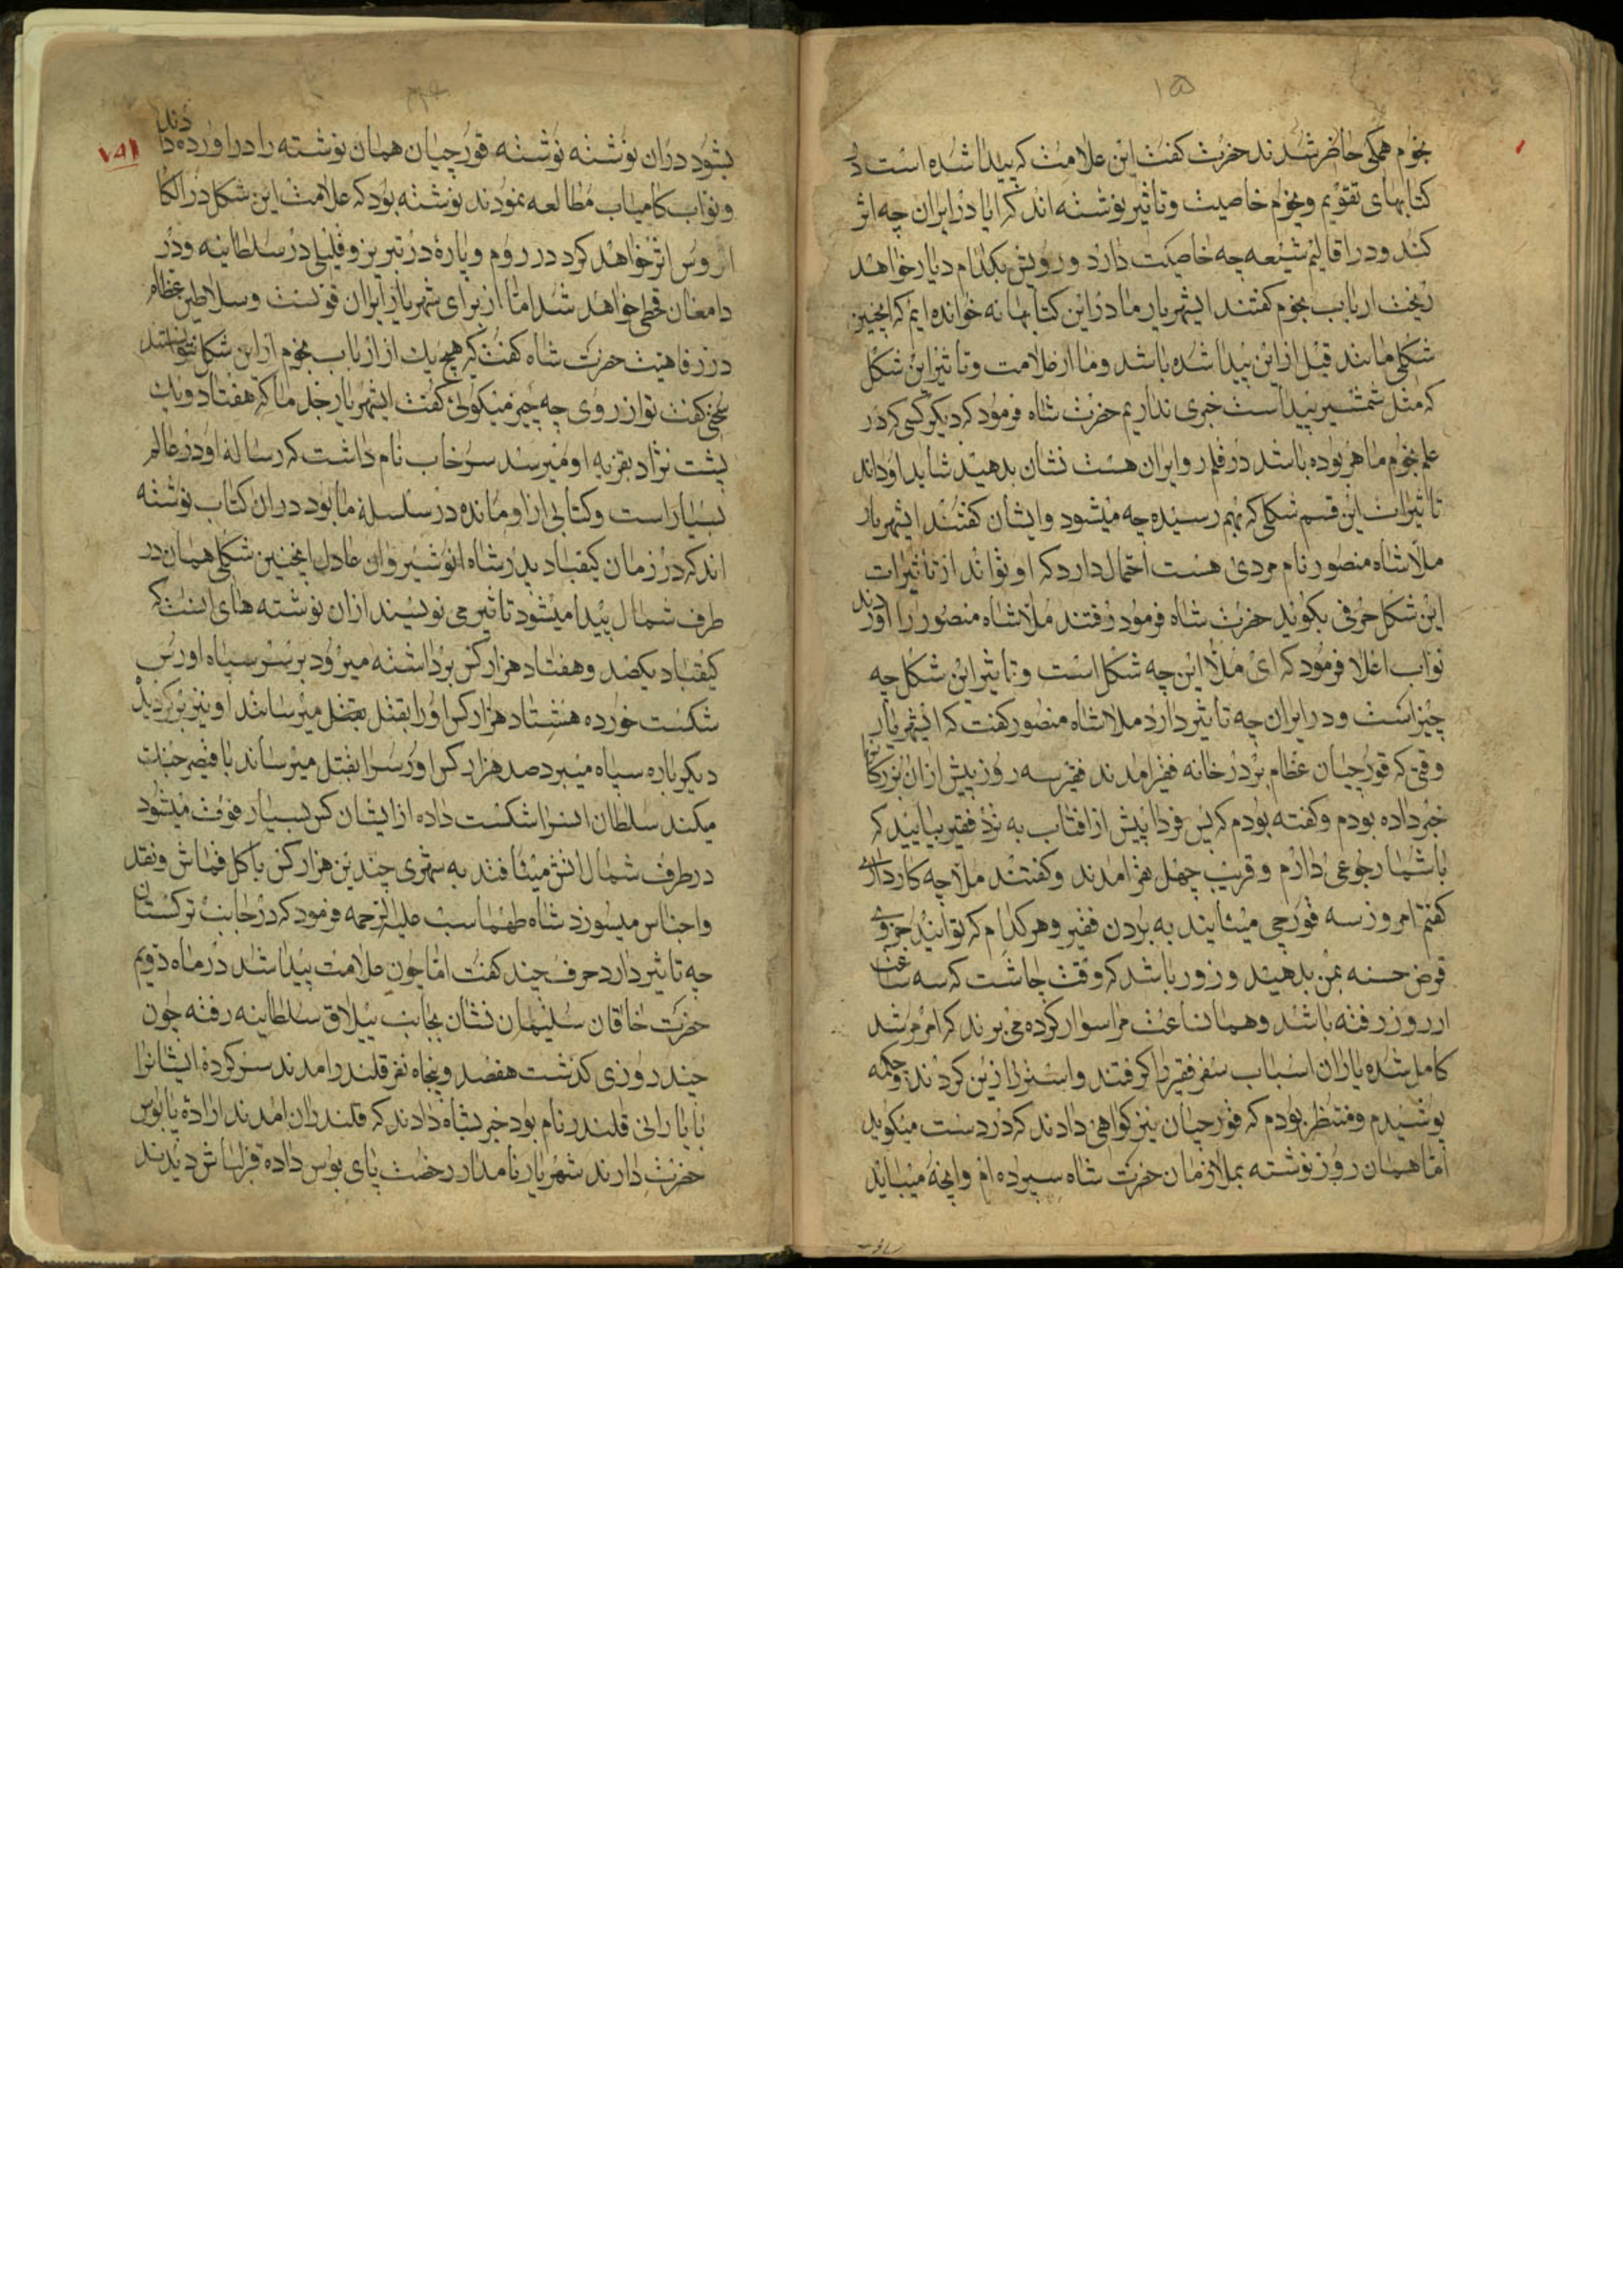 ۱۵
نجوم همکی حاضر شدند حضرت کفت این علامت که پیدا شده است در
کتابهای تقویم و نجوم خاصیت و تاثیر نوشته اند که ایا در ایران چه اثر
کند و در اقالیم شیعه چه خاصیت دارد و رویش بکدام دیار خواهد
ریخت ارباب نجوم کفتند ایشهریار ما در این کتابها نه خوانده ایم که اینچنین
شکلی مانند قبل از این پیدا شده باشد و ما از علامت و تاثیر این شکل
که مثل شمشیر پیداست خبری نداریم حضرت شاه فرمود که دیکر کسی که در
علم نجوم ماهر بوده باشد در قلمرو ایران هست نشان بدهید شاید او داند
تاثیرات این قسم شکلی که بهم رسیده چه میشود و ایشان کفتند ایشهریار
ملا شاه منصور نام مردی هست احتمال دارد که او تواند از تاثیرات
این شکل حرفی بکوید حضرت شاه فرمود رفتند ملا شاه منصور را اوردند
نواب اعلا فرمود که ای ملا این چه شکل است و تاثیر این شکل چه
چیز است و در ایران چه تاثیر دارد ملا شاه منصور کفت که ایشهریار
وقتی که قورچیان عظام بر در خانه فقیر امدند فقیر سه روز پیش از ان
خبر داده بودم و کفته بودم که پس فردا پیش از افتاب به نزد فقیر بیایید که
با شما رجوعی دارم و قریب چهل نفر امدند و کفتند ملا چه کار داری
کفتم امروز سه قورچی میایند به بردن فقیر و هر کدام که توانید جزوی
قرض حسنه بمن بدهید و زور باشد که وقت چاشت که سه ساعت
از روز رفته باشد و همان ساعت مرا سوار کرده می برند که امر مرشد
کامل شده یاران اسباب سفر فقیر را کرفتند و استر را زین کردند و چکمه
پوشیدم و منتظر بودم که قورچیان نیز کواهی دادند که درست میکوید
اما همان روز نوشته بملازمان حضرت شاه سپرده ام و انچه میباید
بشود در ان نوشته نوشته قورچیان همان نوشته را در اورده دادند
و نواب کامیاب مطالعه نمودند نوشته بود که علامت این شکل در الکا
اروس اثر خواهد کرد در روم و پارهٔ در تبریز و قلیلی در سلطانیه و در
دامغان قحطی خواهد شد اما از برای شهریار ایران قوتست و سلاطین عظام
در رفاهیت حضرت شاه کفت که هیچ یک از ارباب نجوم از این شکل نتوانستند
سخنی کفت تو از روی چه چیز میکوئی کفت ایشهریار جد ما که هفتاد و یک
پشت نژاد بقربه او میرسد سرخاب نام داشت که رساله او در عالم
بسیار است و کتابی از او مانده در سلسلهٔ ما بود در ان کتاب نوشته
اند که در زمان کیقباد پدر شاه انوشیروان عادل اینچنین شکلی همان در
طرف شمال پیدا میشود تاثیر می نویسند از ان نوشته های اینست که
کیقباد یکصد و هفتاد هزار کس برداشته میرود بر سر سپاه اورس
شکست خورده هشتاد هزار کس او را بقتل میرسانند او نیز بر کردید
دیکرباره سپاه میبرد صد هزار کس اورس را بقتل میرساند با قیصر جنک
میکند سلطان انسرا شکست داده از ایشان کس بسیار فوت میشود
در طرف شمال اتش میافتد به شهری چندین هزار کس با کل قماش و نقد
و اجناس میسوزد شاه طهماسب علیه الرحمه فرمود که در جانب ترکستان
چه تاثیر دارد حرف چند کفت اما چون علامت پیدا شد در ماه دویم
حضرت خاقان سلیمان نشان بجانب ییلاق سلطانیه رفته چون
چند روزی کذشت هفصد و پنجاه نفر قلندر امدند سر کرده ایشانرا
بابا رانی قلندر نام بود خبر بشاه دادند که قلندران امدند ارادهٔ پابوس
حضرت دارند شهریار نامدار رخصت پای بوس داده قزلباش دیدند